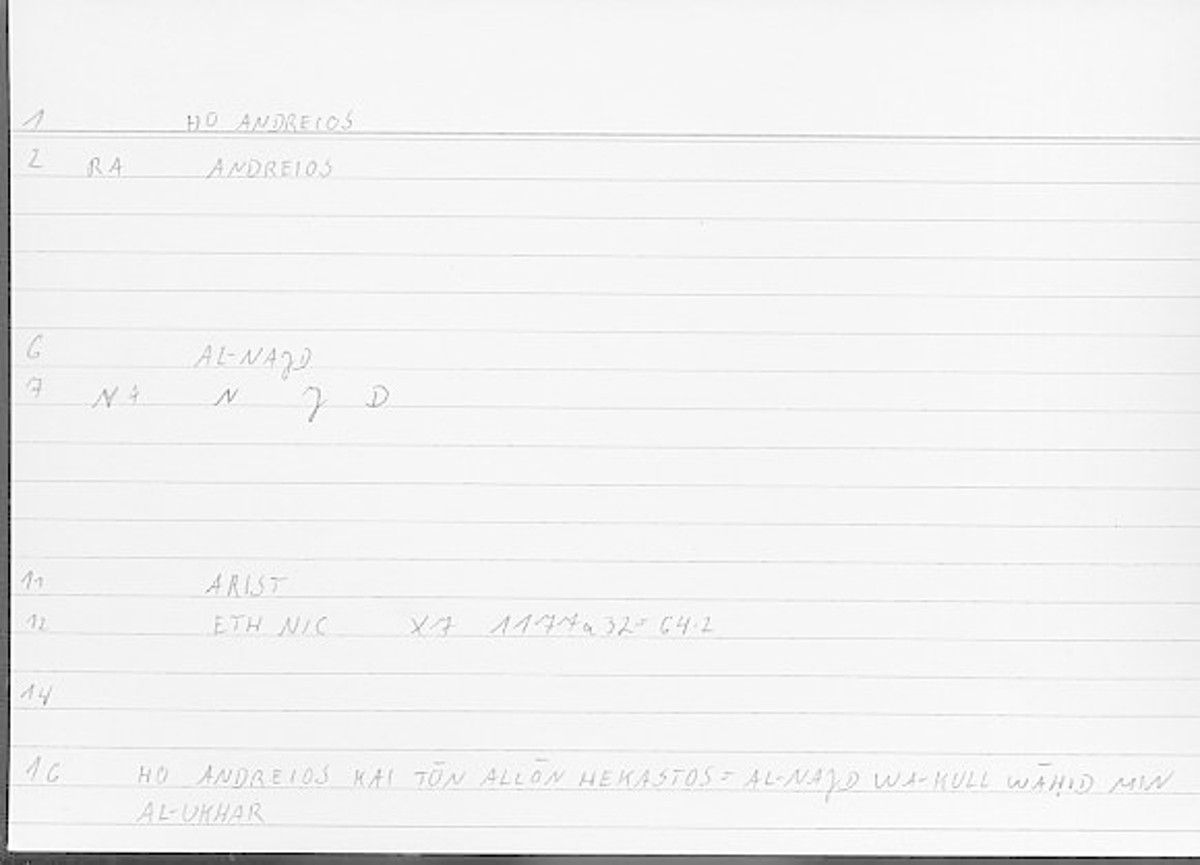 1 HO ANDREIOS
2 RA ANDREIOS
6 AL-NAJD
7 NA N J D
11 ARIST
12 ETH NIC X7 1177a32= 64.2
14
16 HO ANDREIOS KAI TŌN ALLŌN HEKASTOS = AL-NAJD WA-KULL WĀḤID MIN
AL-UKHAR